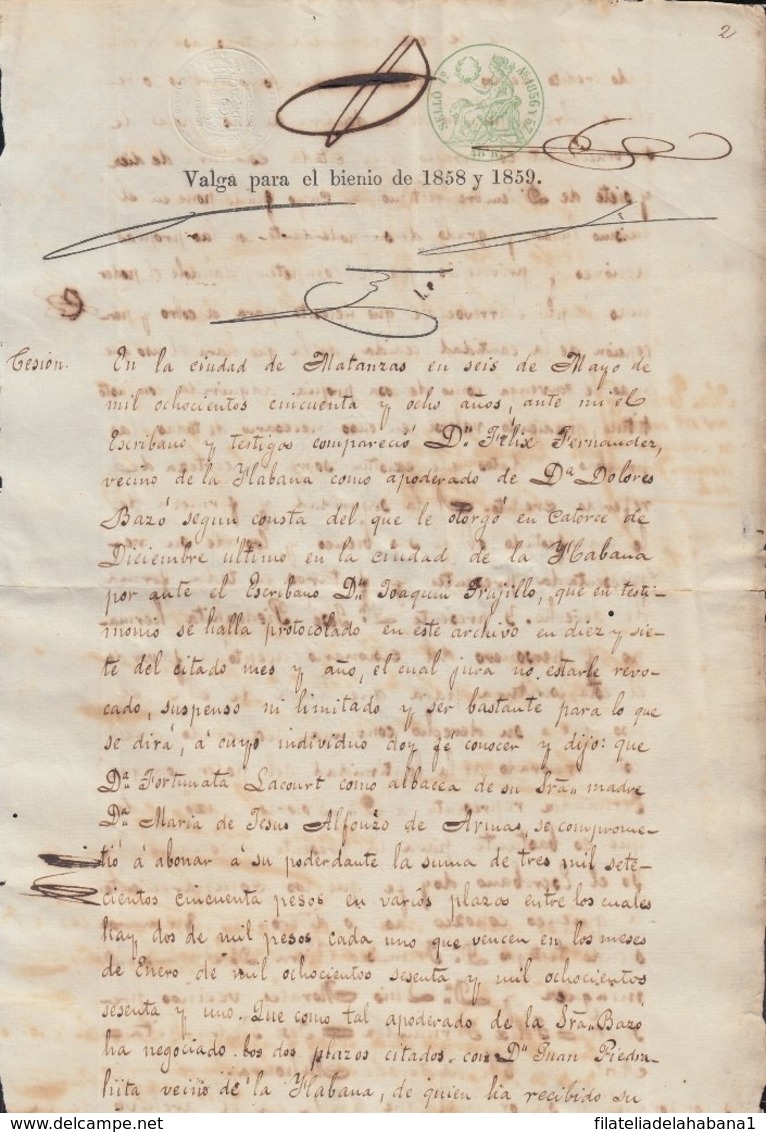 2
SELLO 1º AS. 1856 Y 57
Valga para el bienio de 1858 y 1859.
Cesión. En la ciudad de Matanzas en seis de Mayo de
mil ochocientos cincuenta y ocho años, ante mi el
Escribano y testigos compareció Dn. Félix Fernandez,
vecino de la Habana como apoderado de Da. Dolores
Bazó segun consta del que le otorgó en catorce de
Diciembre último en la ciudad de la Habana
por ante el Escribano Dn. Joaquin Trujillo, que en testi-
monio se halla protocolado en este archivo en diez y sie-
te del citado mes y año, el cual jura no estarle revo-
cado, suspenso ni limitado y ser bastante para lo que
se dirá, á cuyo individuo doy fé conocer y dijo: que
Da. Fortunata Lacourt como albacea de su Sra. madre
Da. Maria de Jesus Alfonzo de Armas, se comprome-
tió á abonar á su poderdante la suma de tres mil sete-
cientos cincuenta pesos en varios plazos entre los cuales
hay dos de mil pesos cada uno que vencen en los meses
de Enero de mil ochocientos sesenta y mil ochocientos
sesenta y uno. Que como tal apoderado de la Sra. Bazó
ha negociado los dos plazos citados con Dn. Juan Piedra
hita vecino de la Habana, de quien ha recibido su
filateliadelahabana1